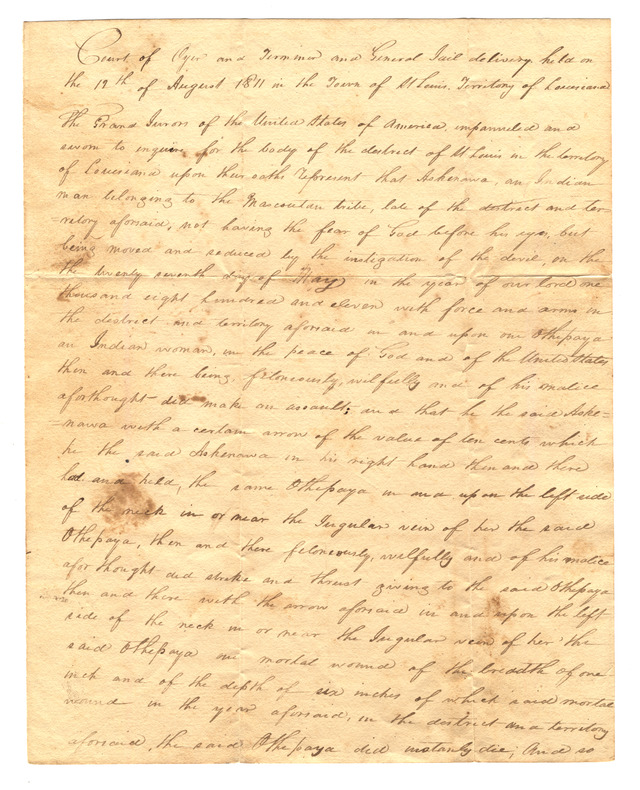 Court of Oyer and Terminor and General Jail delivery held on
the 12th of August 1811 in the Town of St Louis Territory of Louisiana
The Grand Jurors of the United States of America impanneled and
sworn to enquire for the body of the destrect of St Louis in the territory
of Louisiana upon their oaths represent that Askenawa, an Indian
man belonging to the Mascoutau tribe, late of the destrect and ter-
=retory aforsaid, not having the fear of God before his eyes, but
being moved and seduced by the instigation of the devil, on the
the twenty seventh day of May in the year of our lord one
thousand eight hundred and eleven with force and arms in
the destrect and territory aforsaid in and upon one Othepaya
an Indian woman, in the peace of God and of the United States
then and there being, feloneously, wilfully and of his malice
aforthought did make an assault; and that he the said Aske-
=nawa with a certain arrow of the value of ten cents which
he the said Askenawa in his right hand then and there
had and held, the same Othepaya in and upon the left side
of the neck in or near the Jugular vein of her the said
Othepaya, then and there feloneously, wilfully and of his malice
afor thought did strike and thrust giving to the said Othepaya
then and there with the arrow aforsaid in and upon the left
side of the neck in or near the Jugular vein of her the
said Othepaya one mortal wound of the breadth of one
inch and of the depth of six inches of which said mortal
wound in the year aforsaid, in the destrect and territory
aforsaid, the said Othepaya did instantly die; And so